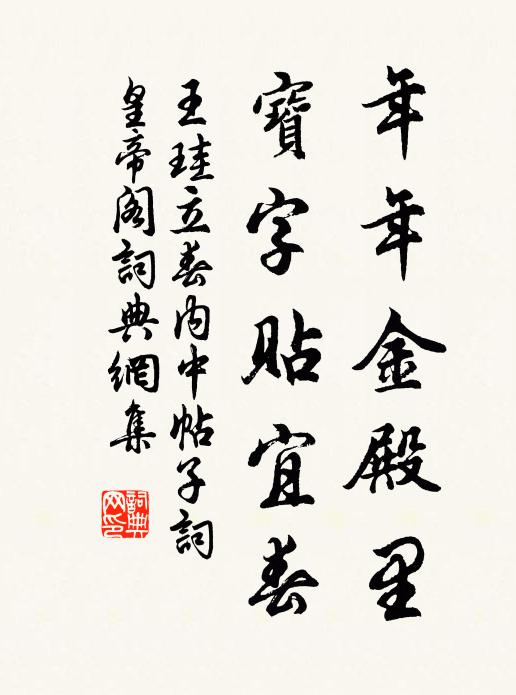 年年金殿里
寶字貼宜春
王珪立春内中帖子詞
皇帝閣詞典網集
詞典
网印